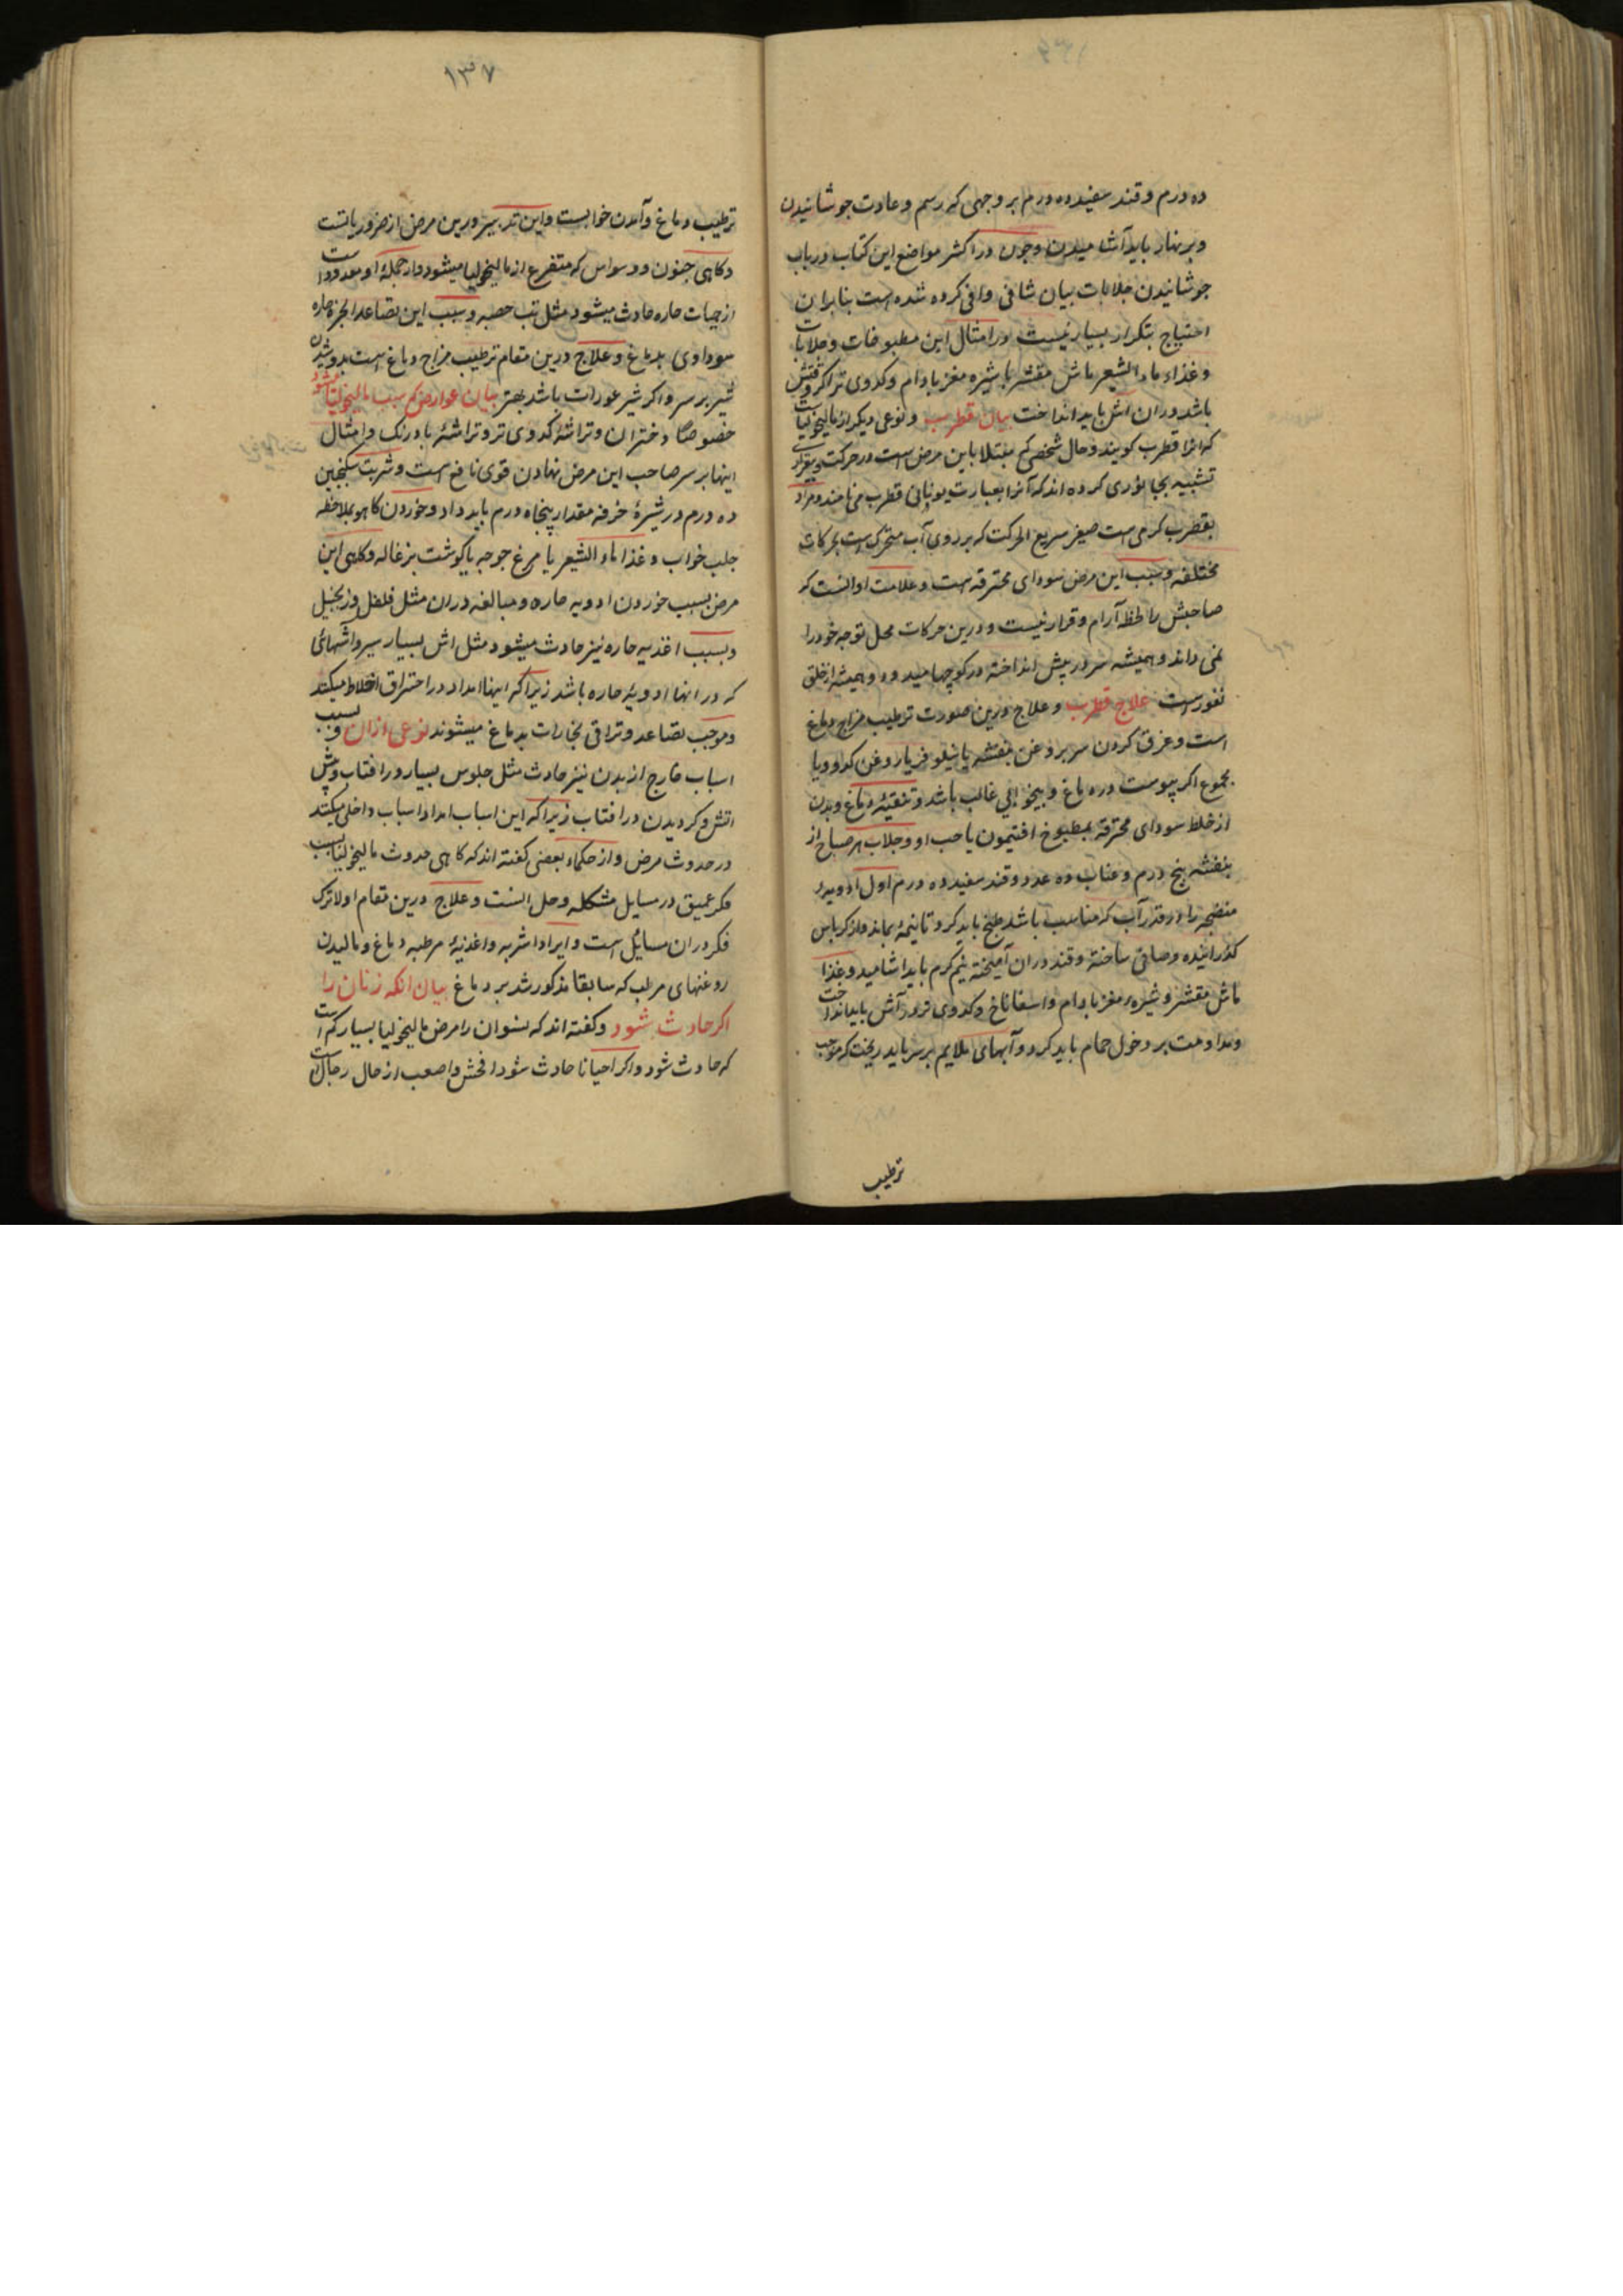 ده درم و قند سفید ده درم بر وجهی که رسم و عادت جوشانیدن
و بر نهار باید آشامیدن و چون در اکثر مواضع این کتاب در باب
جوشانیدن جلابات بیان شافی وافی کرده شده است بنابران
احتیاج بتکرار بسیار نیست در امثال این مطبوخات و جلابات
و غذا ماء الشعیر ماش مقشر با شیره مغز بادام و کدوی تر اکر وقتش
باشد دران آش باید انداخت بیان قطرب و نوعی دیکر از مالیخولیاست
که انرا قطرب کویند و حال شخصی که مبتلا باین مرض است در حرکت و بیقراری
تشبیه بجانوری کرده اند که آنرا بعبارت یونانی قطرب می نامند و مراد
بقطرب کرمی است صغیر سریع الحرکت که بر روی آب متحرک است بحرکات
مختلفه و سبب این مرض سودای محترقه است و علامت او انست که
صاحبش را لحظه آرام و قرار نیست و درین حرکات محل توجه خود را
نمی داند و همیشه سر در پیش انداخته در کوچها میدود و همیشه از خلق
نفور است علاج قطرب و علاج درین صورت ترطیب مزاج دماغ
است و غرق کردن سر بروغن بنفشه یا نیلوفر یا روغن کدو و یا
مجموع اکر یبوست در دماغ و بیخوابی غالب باشد و تنقیه دماغ و بدن
از خلط سودای محترقه بمطبوخ افتیمون یا حب او و جلاب هر صباح از
بنفشه پنج درم و عناب ده عدد و قند سفید ده درم اول ادویه
منضجه را در قدر آب که مناسب باشد طبخ باید کرد تا نیمه بماند و از کرباس
کذرانیده و صافی ساخته و قند دران آمیخته نیم کرم باید اشامید و غذا
ماش مقشر و شیره مغز بادام و اسفاناخ و کدوی تر در آش باید انداخت
و مداومت بر دخول حمام باید کرد و آبهای ملایم بر سر باید ریخت که موجب
ترطیب
۱۳۷
ترطیب دماغ و آمدن خوابست و این تدبیر درین مرض از ضروریاتست
و کاهی جنون و وسواس که متفرع از مالیخولیا میشود و از جمله او معدود است
از حمیات حاره حادث میشود مثل تب حصبه و سبب این تصاعد ابخره حاره
سوداوی بدماغ و علاج درین مقام ترطیب مزاج دماغ است بدوشیدن
شیر بر سر و اکر شیر عورات باشد بهتر بیان عوارض که سبب مالیخولیا میشود
خصوصا دختران و تراشه کدوی تر و تراشه بادرنک و امثال
اینها بر سر صاحب این مرض نهادن قوی نافع است و شربت سکنجبین
ده درم در شیره خرفه مقدار پنجاه درم باید داد و خوردن کاهو بملاحظه
جلب خواب و غذا ماء الشعیر یا مرغ جوجه یا کوشت بزغاله و کاهی این
مرض بسبب خوردن ادویه حاره و مبالغه دران مثل فلفل و زنجبیل
و بسبب اغذیه حاره نیز حادث میشود مثل اش بسیار سیر و اشهائی
که در انها ادویه حاره باشد زیرا که اینها امداد در احتراق اخلاط میکند
و موجب تصاعد و تراقی بخارات بدماغ میشوند نوعی ازان و بسبب
اسباب خارج از بدن نیز حادث مثل جلوس بسیار در افتاب و پیش
اتش و کردیدن در افتاب زیرا که این اسباب امداد اسباب داخلی میکند
در حدوث مرض و از حکماء بعضی کفته اند که کاهی حدوث مالیخولیا بسبب
فکر عمیق در مسایل مشکله و حل انست و علاج درین مقام اولا ترک
فکر دران مسائل است و ایراد اشربه و اغذیه مرطبه دماغ و مالیدن
روغنهای مرطب که سابقا مذکور شد بر دماغ بیان انکه زنان را
اکر حادث شود و کفته اند که نسوان را مرض مالیخولیا بسیار کم است
که حادث شود و اکر احیانا حادث شود افحش و اصعب از حال رجال است